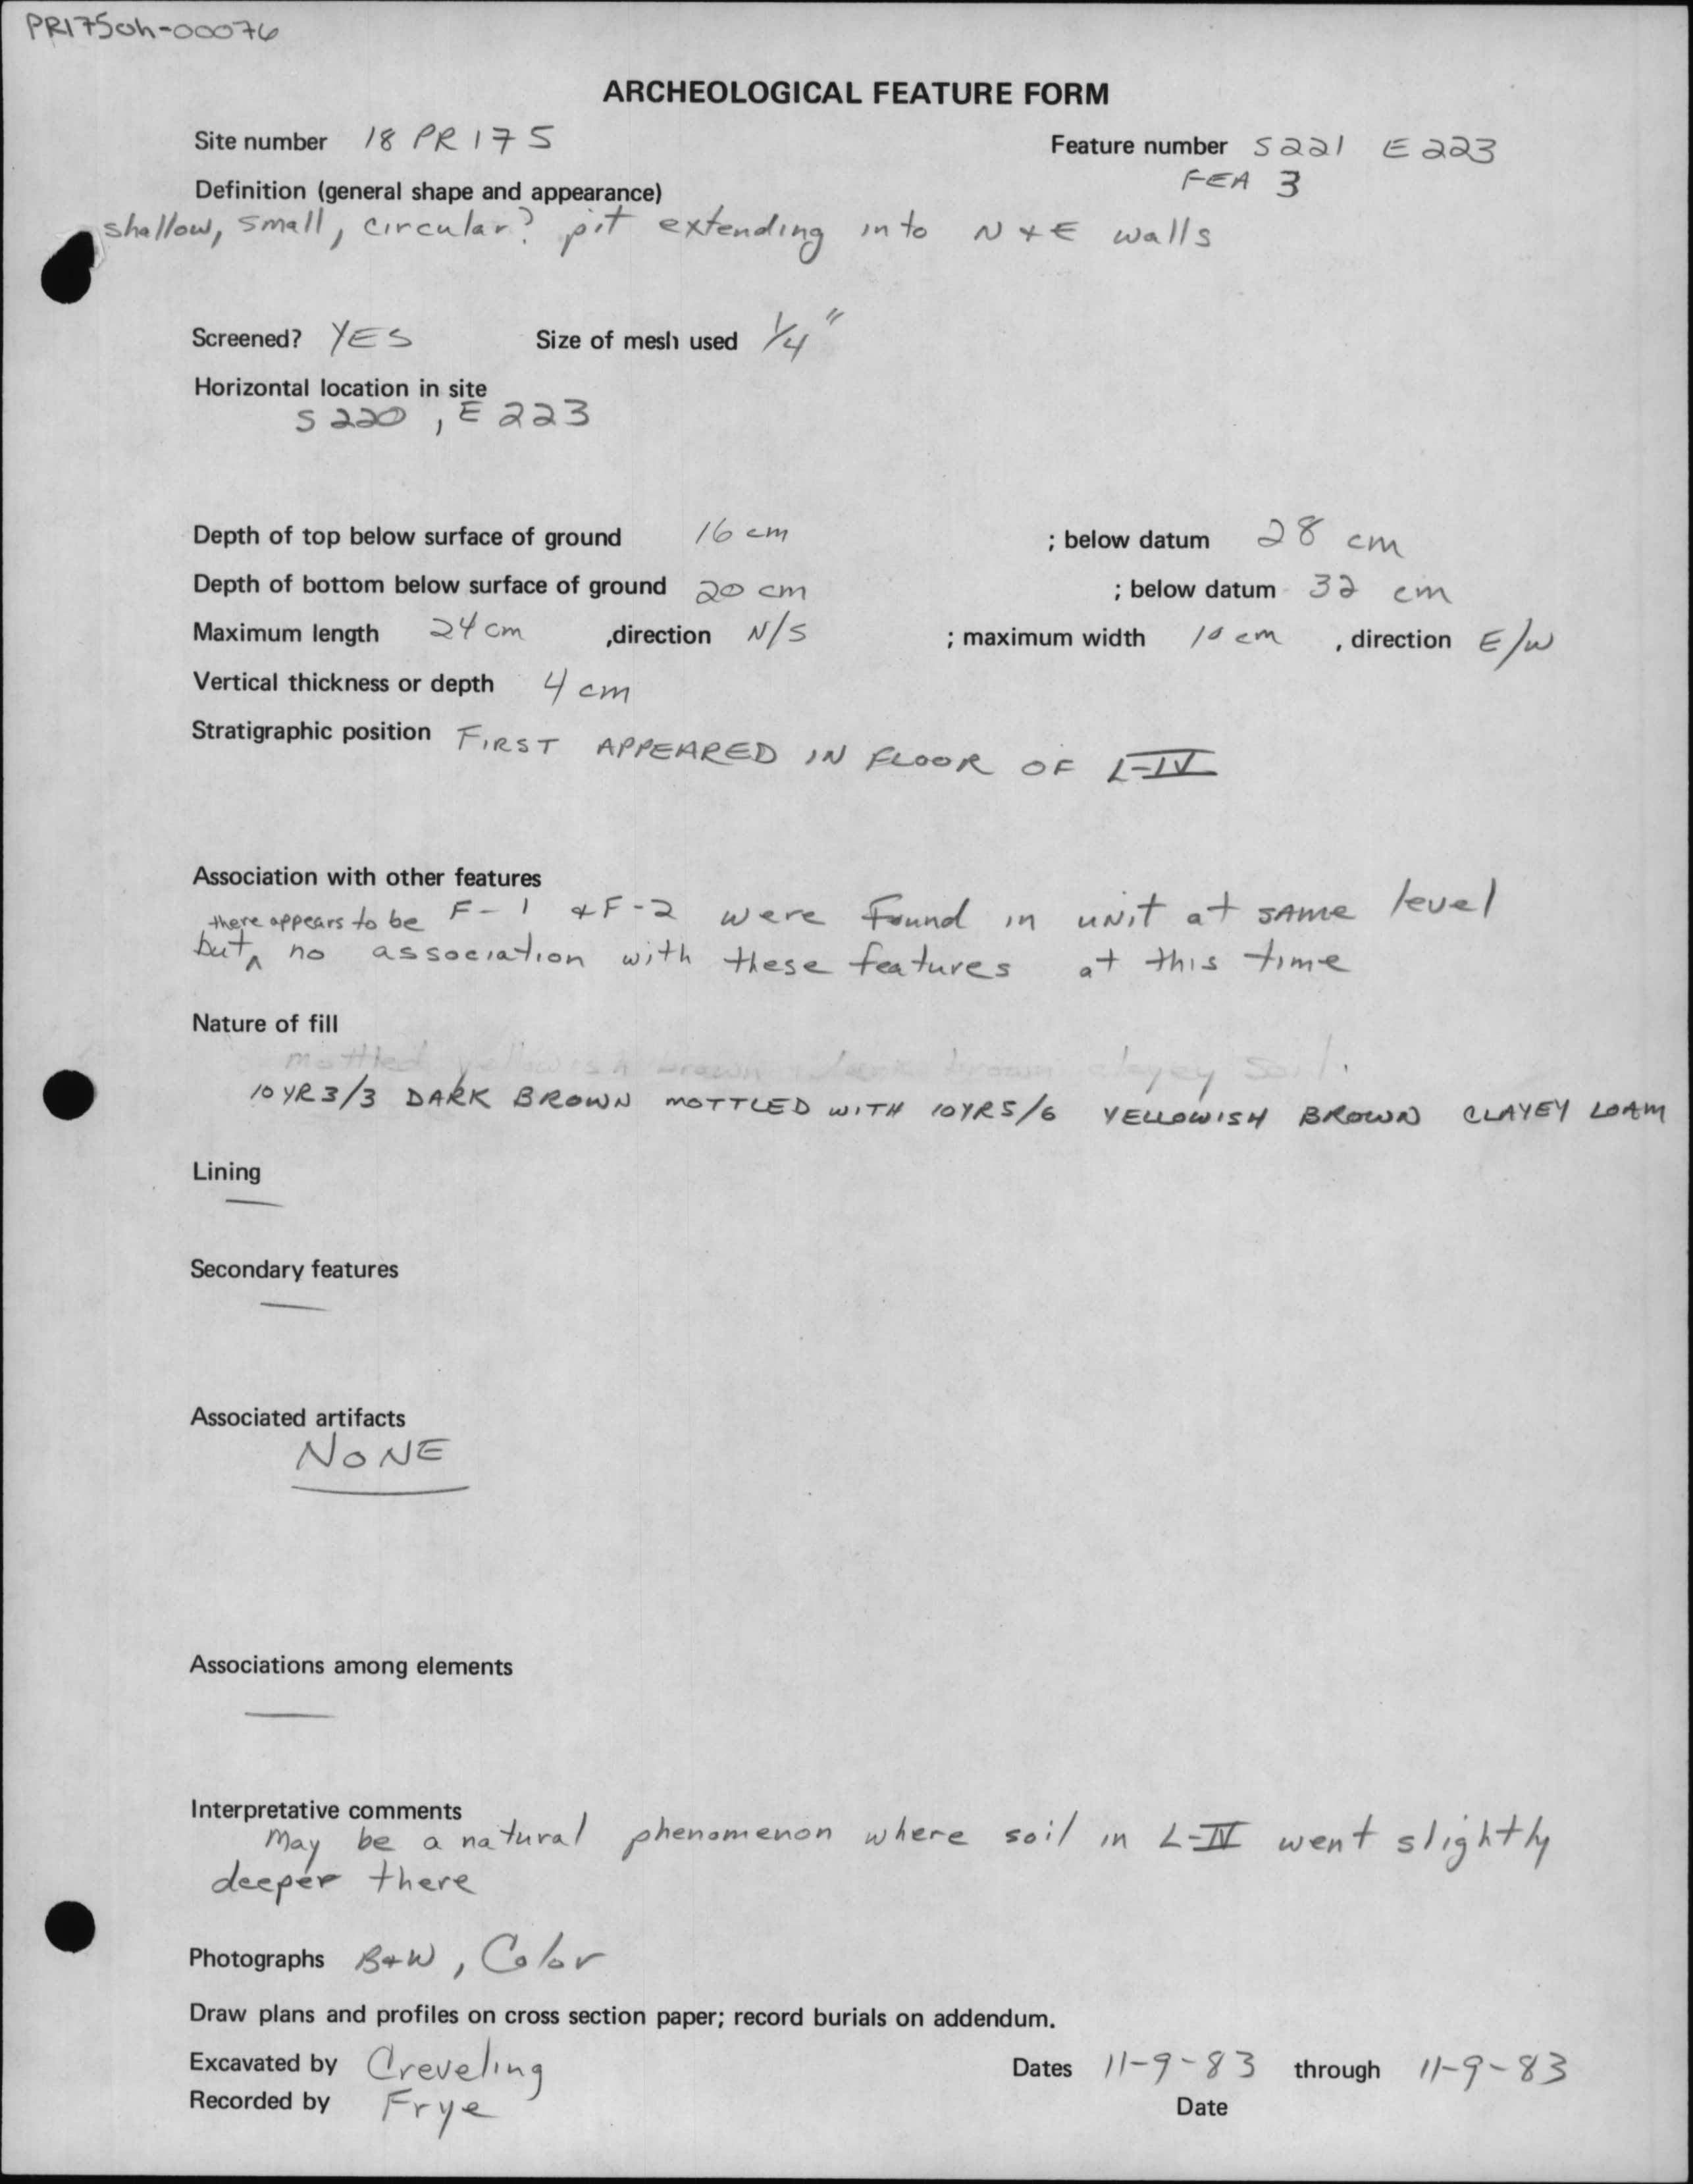 PR175oh-00076
ARCHEOLOGICAL FEATURE FORM
Site number 18 PR 175 Feature number S221 E223
FEA 3
Definition (general shape and appearance)
shallow, small, circular? pit extending into N + E walls
Screened? YES Size of mesh used 1/4"
Horizontal location in site
S220, E223
Depth of top below surface of ground 16 cm ; below datum 28 cm
Depth of bottom below surface of ground 20 cm ; below datum 32 cm
Maximum length 24 cm ,direction N/S ; maximum width 10 cm , direction E/W
Vertical thickness or depth 4 cm
Stratigraphic position FIRST APPEARED IN FLOOR OF L-IV
Association with other features
F-1 + F-2 were found in unit at same level
but ^ there appears to be no association with these features at this time
Nature of fill
mottled yellowish brown dark brown clayey soil.
10YR3/3 DARK BROWN MOTTLED WITH 10YR5/6 YELLOWISH BROWN CLAYEY LOAM
Lining
—
Secondary features
—
Associated artifacts
NONE
Associations among elements
—
Interpretative comments
May be a natural phenomenon where soil in L-IV went slightly
deeper there
Photographs B+W, Color
Draw plans and profiles on cross section paper; record burials on addendum.
Excavated by Creveling Dates 11-9-83 through 11-9-83
Recorded by Frye Date